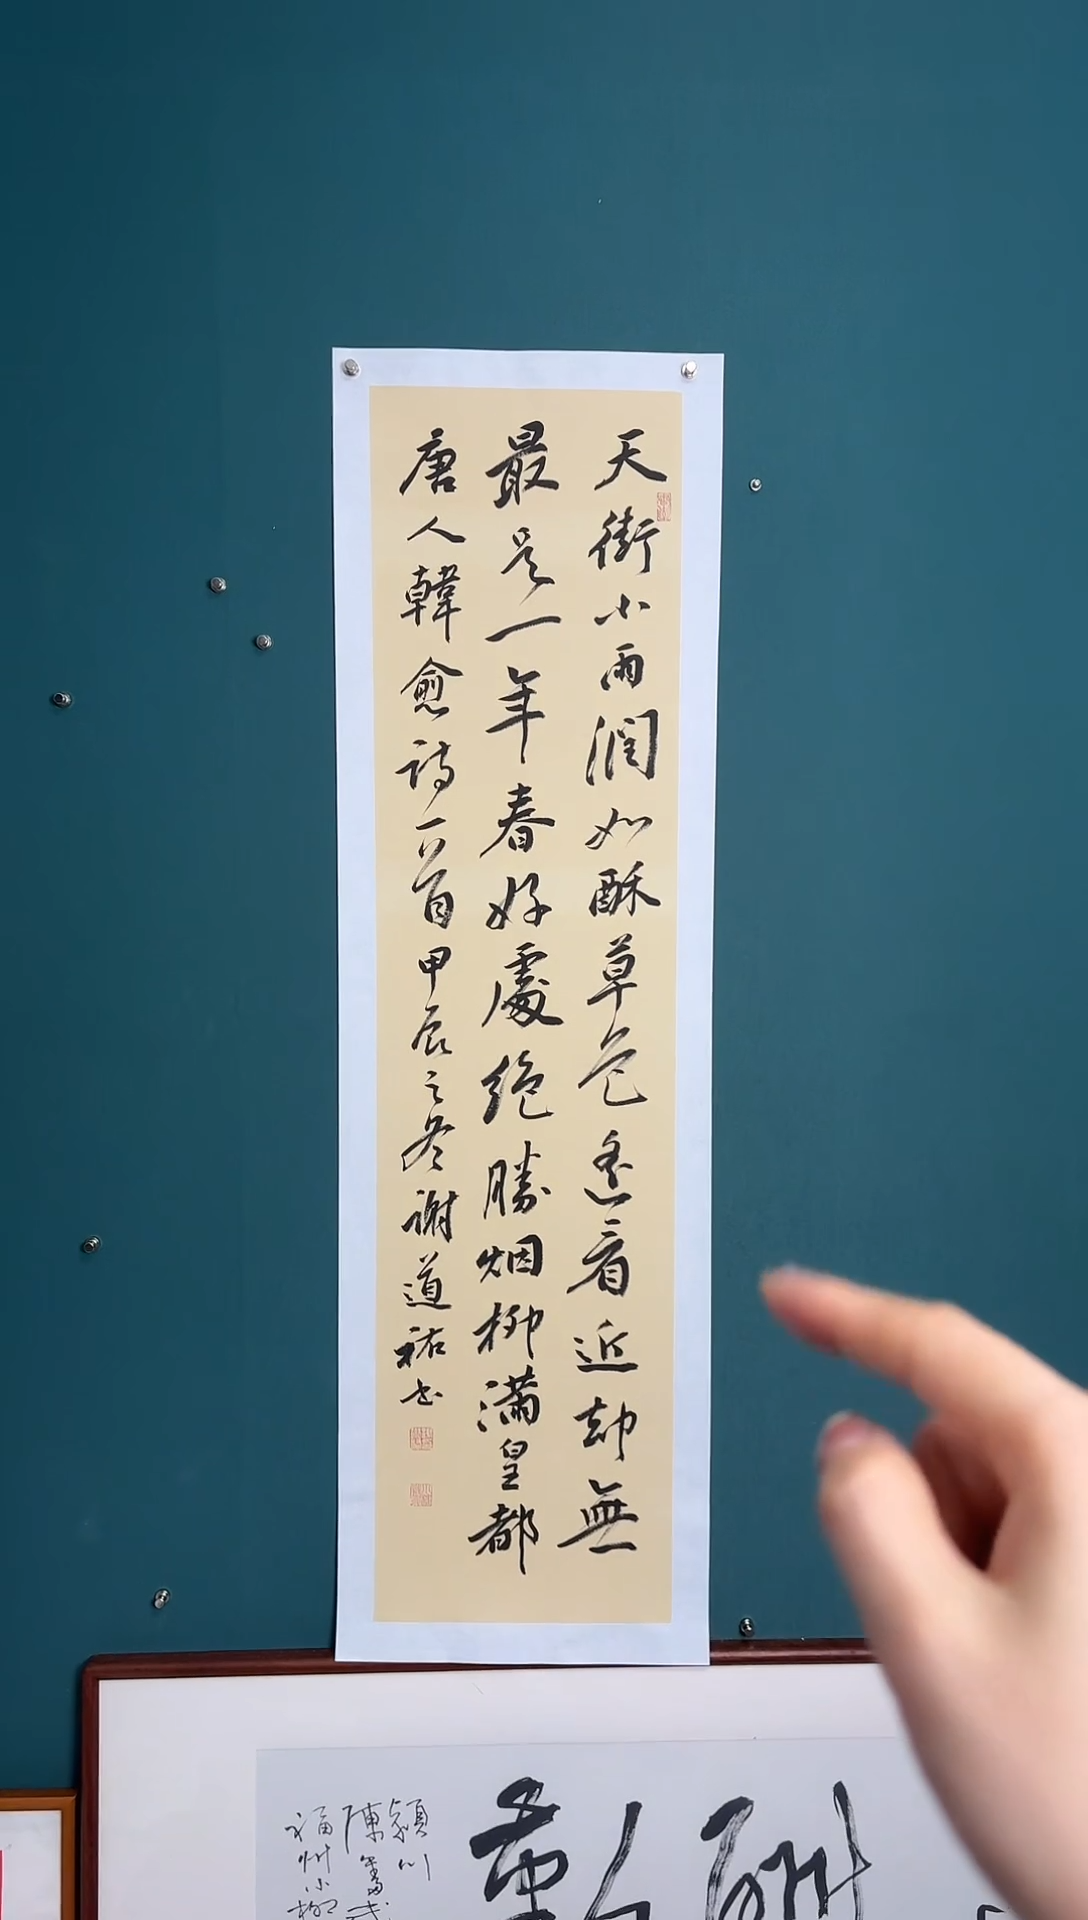 天街小雨潤如酥草色遙看近却無
最是一年春好處絕勝烟柳滿皇都
唐人韓愈詩一首甲辰之冬謝道祐书
潁川
陳
福州小柳